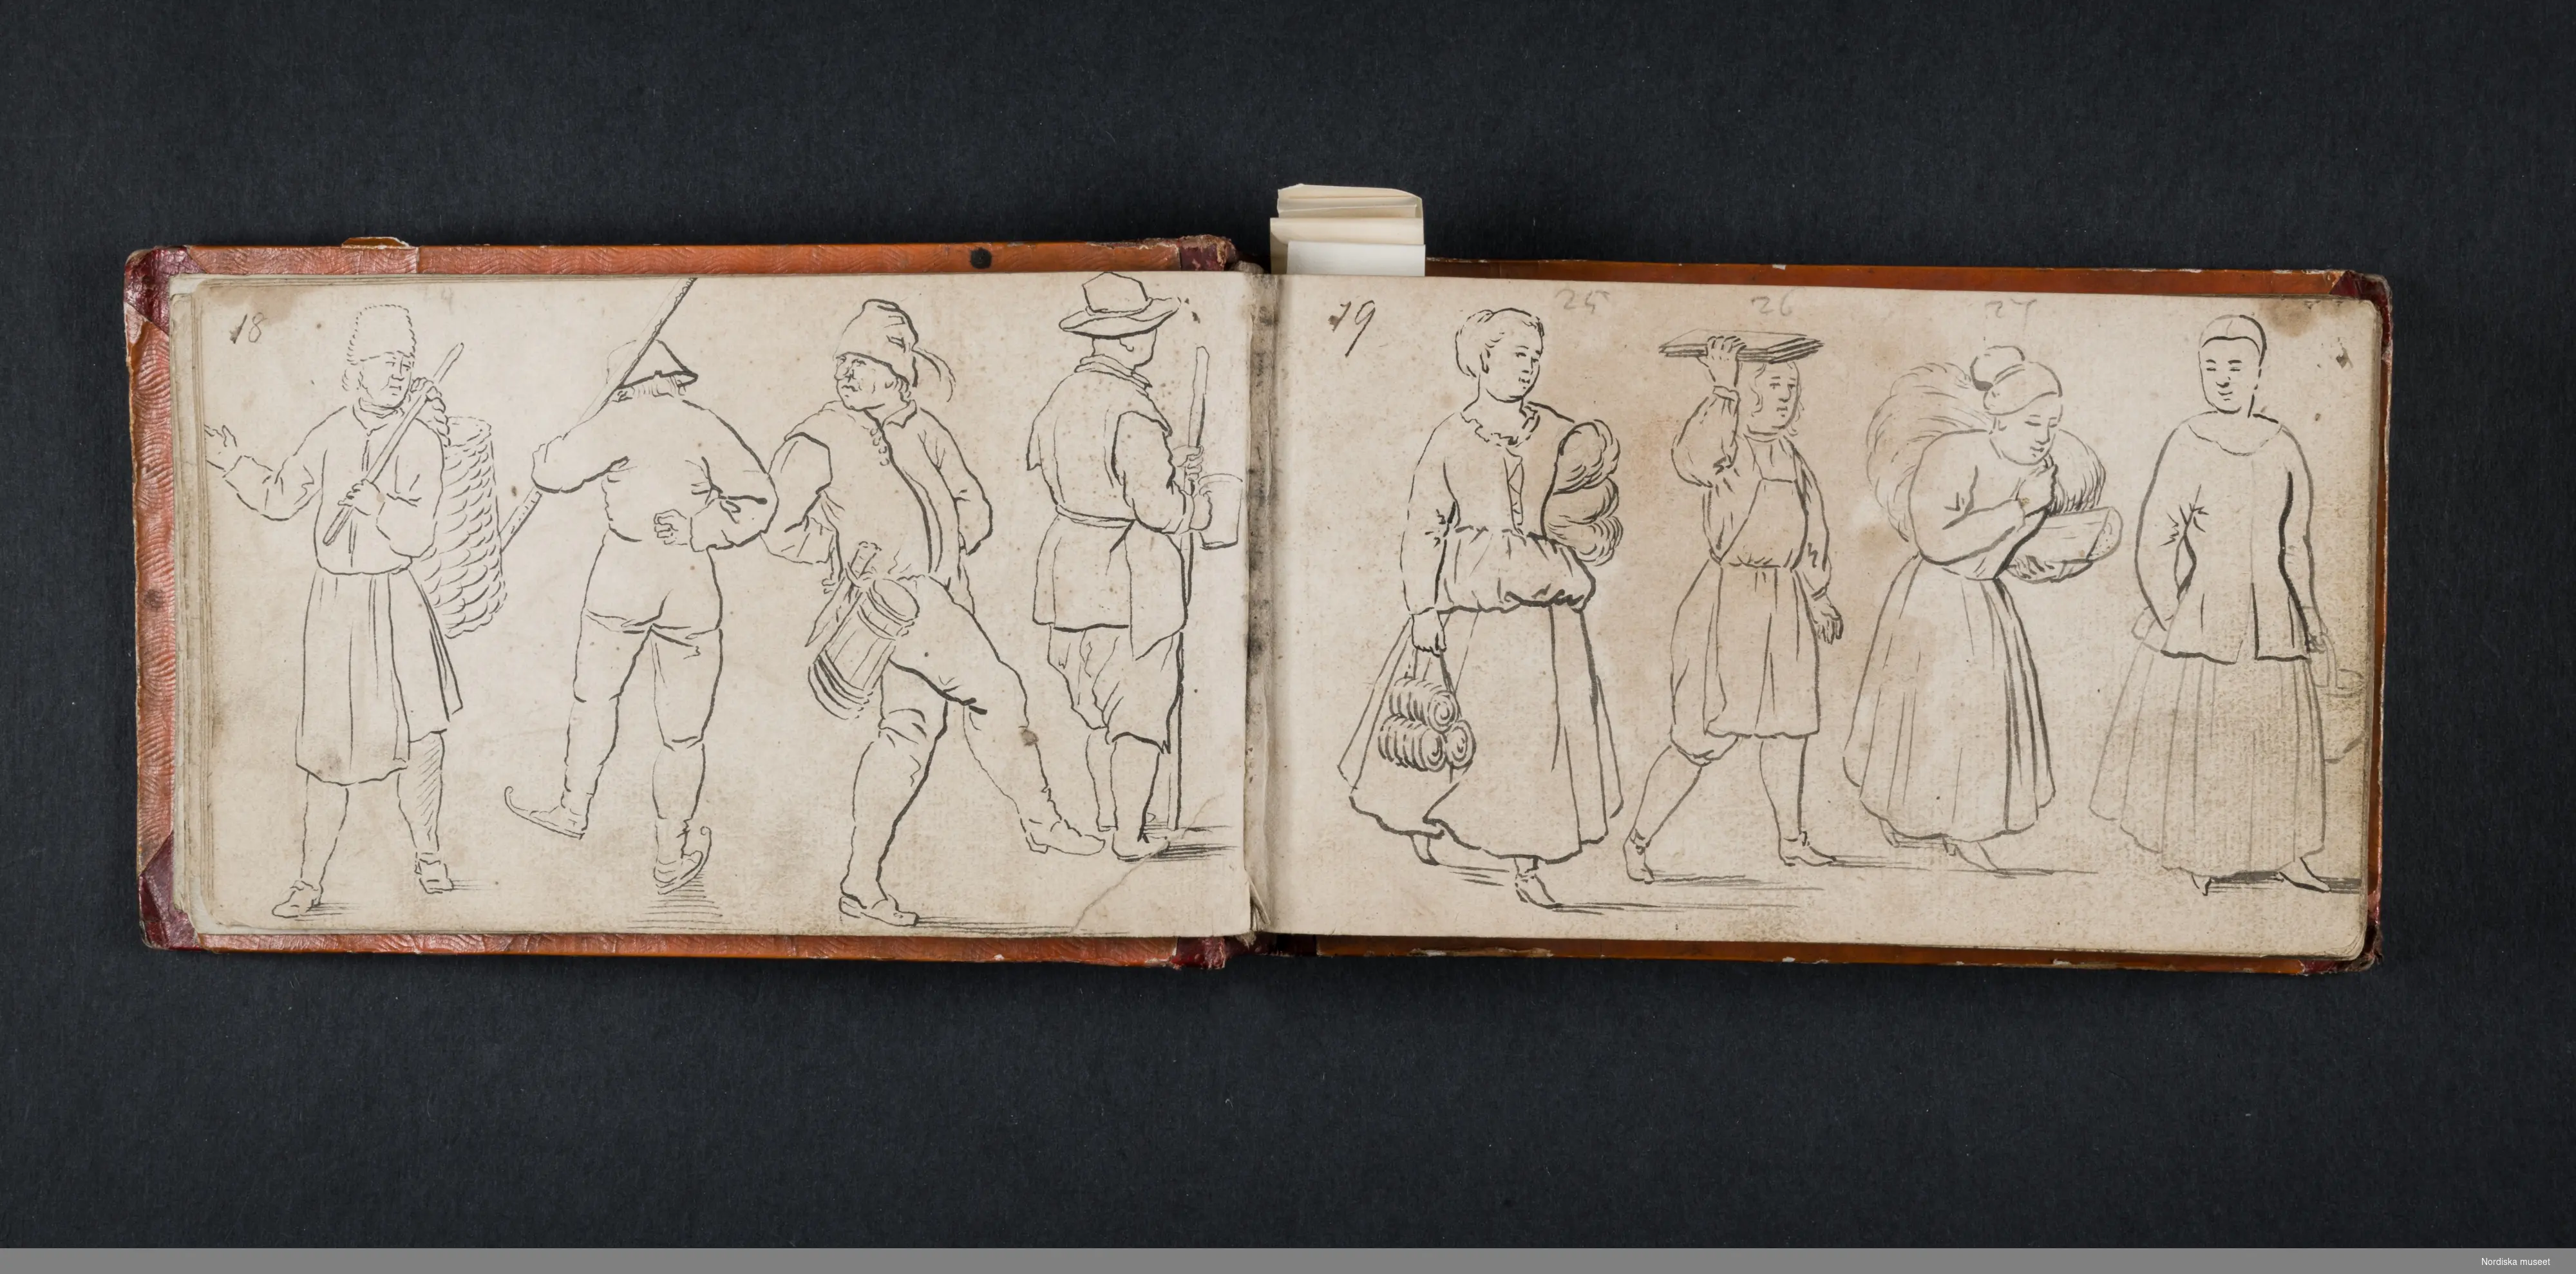 18
19
25
26
27
Nordiska museet